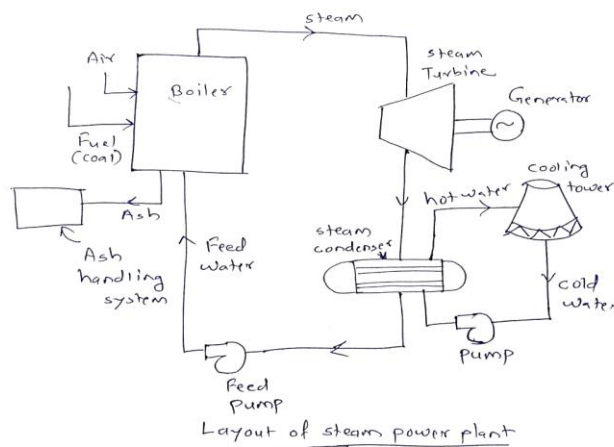 steam
Air
Boiler
steam
Turbine
Generator
Fuel
(coal)
cooling
tower
hot water
Ash
steam
condenser
Feed
water
Ash
handling
system
cold
water
pump
Feed
pump
Layout of steam power plant